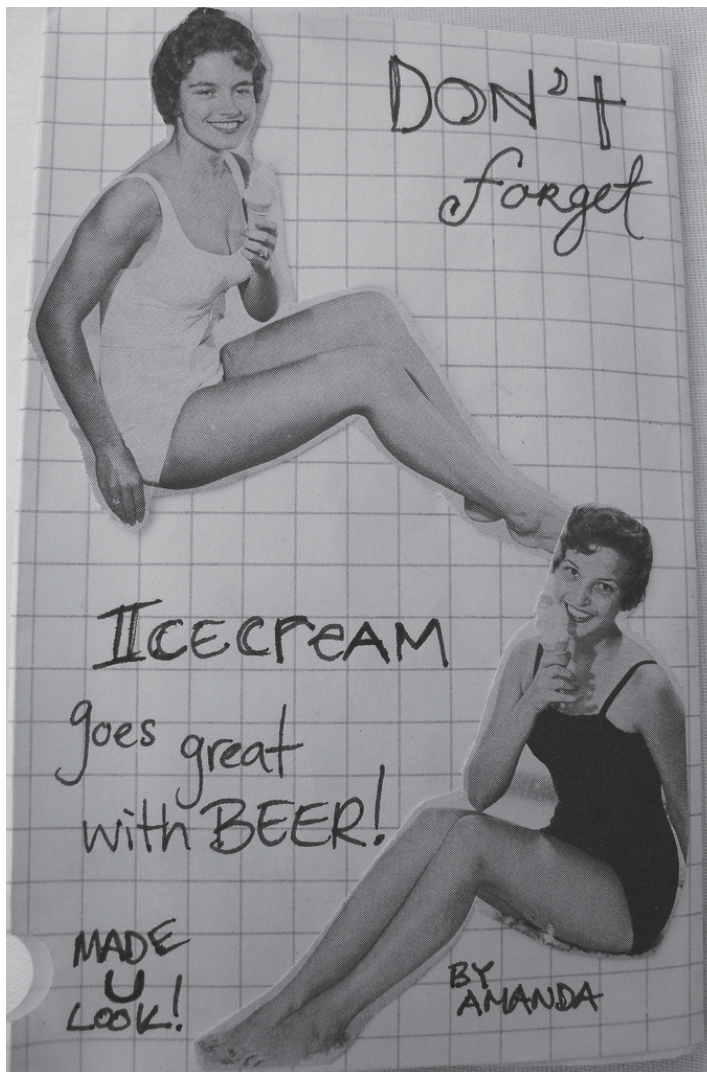 DON't
forget
ICECreAM
goes great
with BEER!
MADE
U
LOOK!
BY
AMANDA